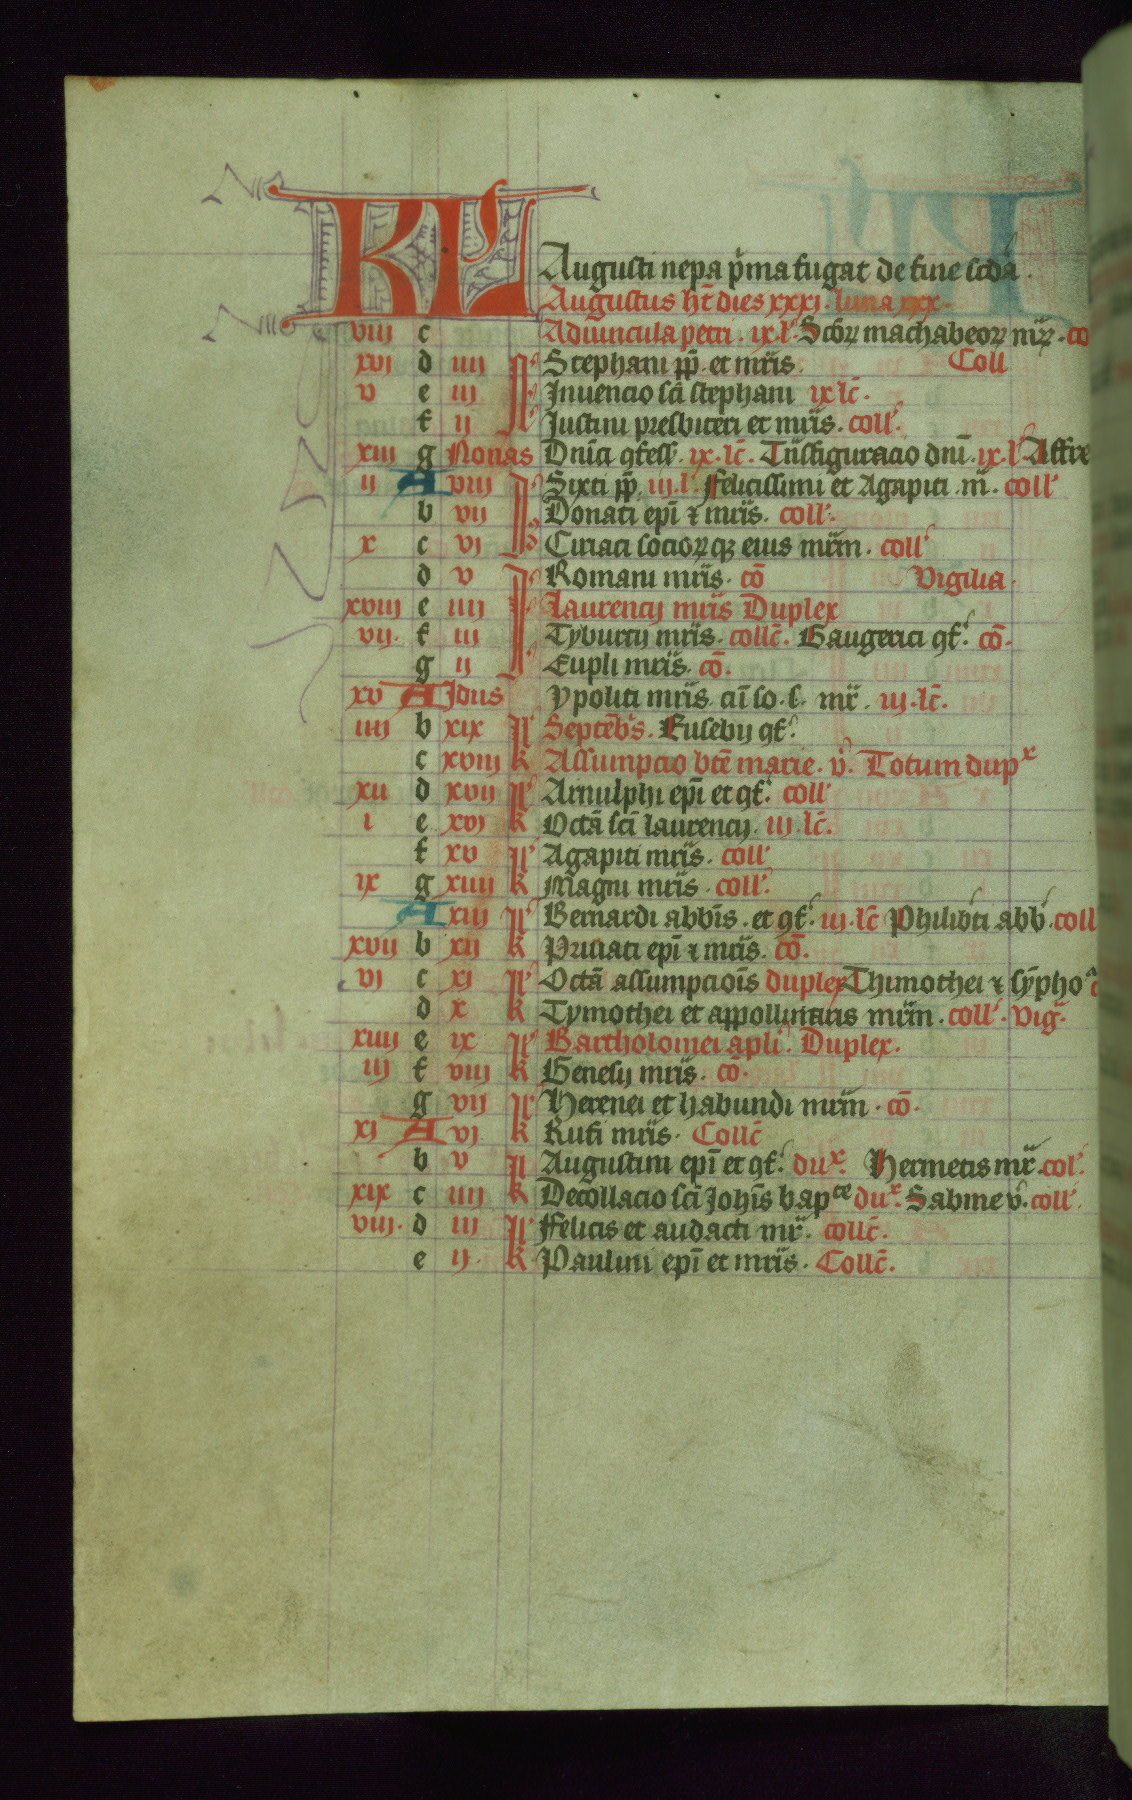 KL Augusti nepa p̄ma fugat de fine scd̄a.
Augustus ht̄ dies xxxi. luna xxx.
viii c Ad vincula petri. ix.l' Sc̄oꝝ machabeoꝝ mr̄ꝝ. co
xvi d iiii N' Stephani pp̄. et mr̄is. Coll
v e iii Invencio sc̄i stephani ix lc̄.
f ii N' Justini presbiteri et mr̄is. coll'.
xiii g Nonas Dn̄ici ꝯfess'. ix. lc̄. Tn̄sfiguracio dn̄i. ix.l' Affre
ii A viii Sixti pp̄. iii.l'. Felicissimi et Agapiti .m̄. coll'
b vii Donati ep̄i ⁊ mr̄is. coll'.
x c vi Id Ciriaci socioꝝqꝫ eius mr̄im. coll'
d v Romani mr̄is. cō Vigilia.
xviii e iiii Laurencij mr̄is Duplex
vii. f iii Tyburcij mr̄is. collc̄. Gaugerici ꝯf'. cō.
g ii Eupli mr̄is. cō.
xv A Idus Ypoliti mr̄is. cū so. s. mr̄. iii. lc̄.
iiii b xix kl' Septēb's. Eusebij ꝯf'.
c xviii k Assumpcio btē marie. v'. Totum dupx
xii d xvii kl' Arnulphi ep̄i et ꝯf'. coll'
i e xvi k Octā sc̄i laurencij. iii. lc̄.
f xv kl' Agapiti mr̄is. coll'
ix g xiiii k Magni mr̄is. coll'.
A xiii kl' Bernardi abb̄is. et ꝯf'. iii. lc̄ Philib'ti abb'. coll
xvii b xii k Privati ep̄i ⁊ mr̄is. cō.
vi c xi kl' Octā assumpciōis duplex Thimothei ⁊ sȳpho' c
d x k Tymothei et appollinaris mr̄im. coll'. vig'.
xiiii e ix kl' Bartholomei apl'i. Duplex.
iii f viii k Genesij mr̄is. cō.
g vii kl' Herenei et habundi mr̄im. cō.
xi A vi k Rufi mr̄is. Collc̄
b v kl Augustini ep̄i et ꝯf'. dux. Hermetis mr̄. col'.
xix c iiii k Decollacio sc̄i Joh̄is bapce dux. Sabine v'. coll'.
viii. d iii kl' Felicis et audacti mr̄. collc̄.
e ij. k Paulini ep̄i et mr̄is. Collc̄.